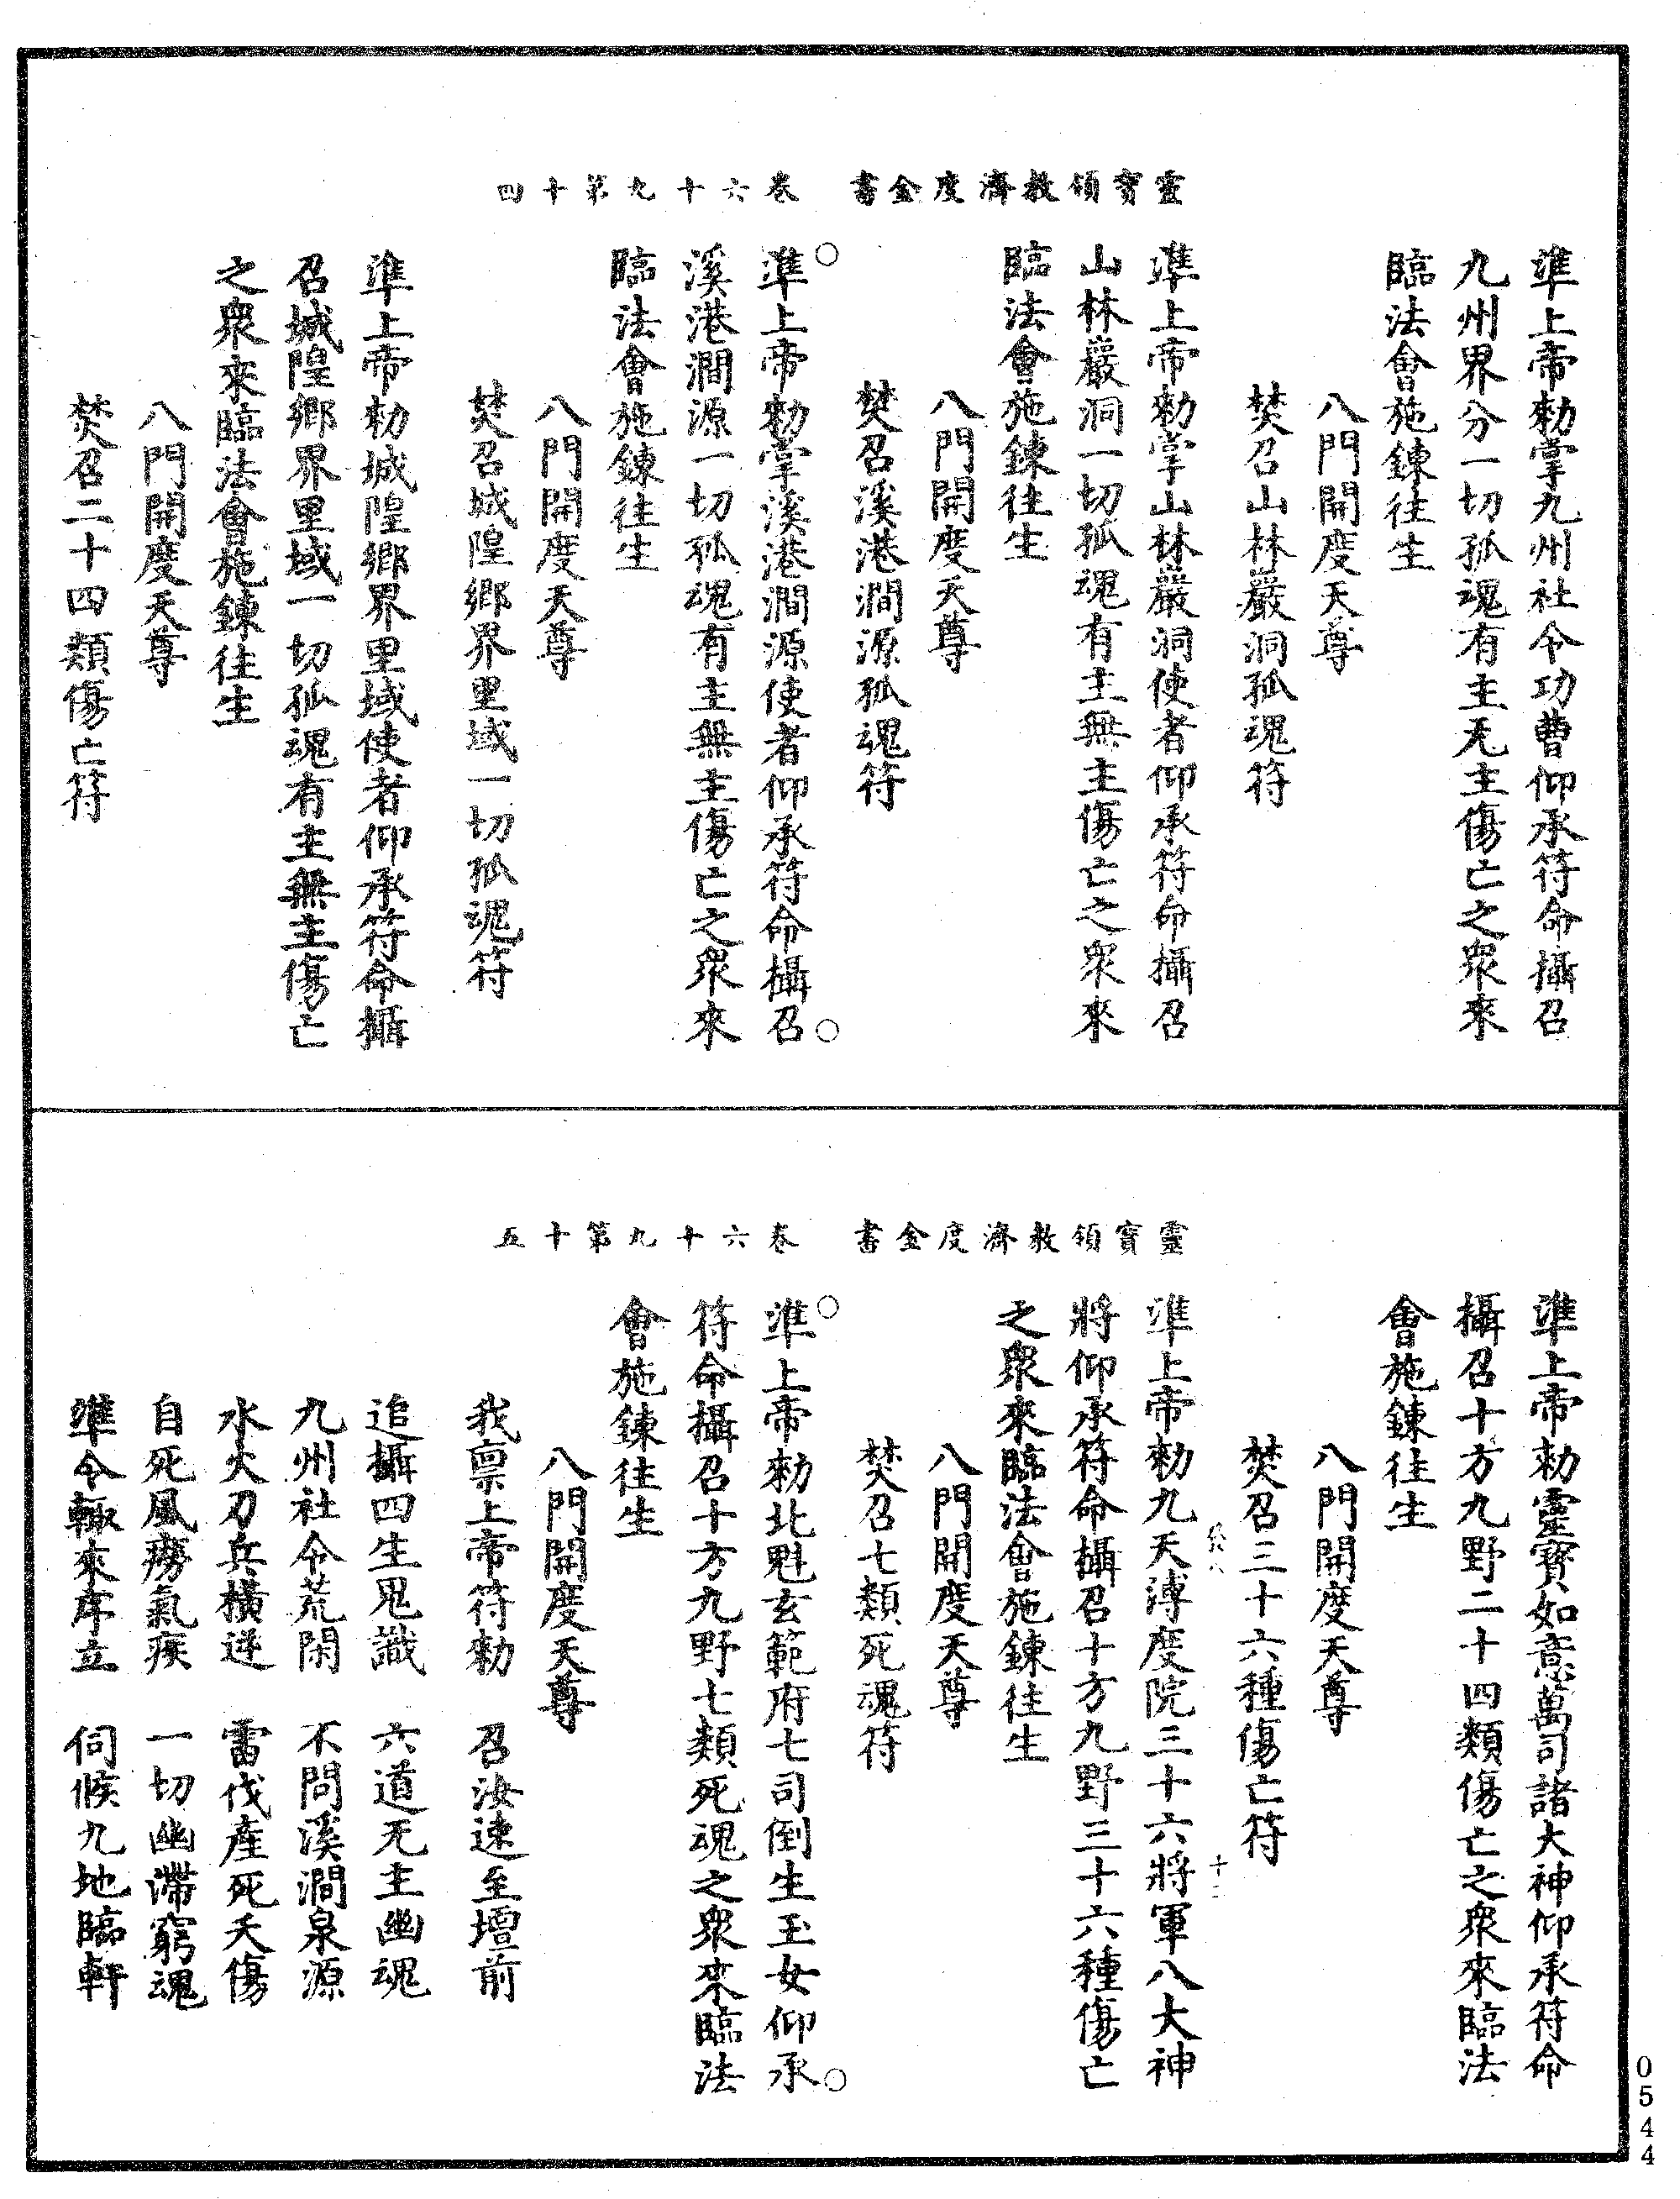 靈寶領教濟度金書　卷六十九第十四
準上帝勑掌九州社令功曹仰承符命攝召
九州界分一切孤魂有主无主傷亡之衆來
臨法會施鍊往生
八門開度天尊
焚召山林巖洞孤魂符
準上帝勑掌山林巖洞使者仰承符命攝召
山林巖洞一切孤魂有主無主傷亡之衆來
臨法會施鍊往生
八門開度天尊
焚召溪港澗源孤魂符
準上帝勑掌溪港澗源使者仰承符命攝召
溪港澗源一切孤魂有主無主傷亡之衆來
臨法會施鍊往生
八門開度天尊
焚召城隍鄉界里域一切孤魂符
準上帝勑城隍鄉界里域使者仰承符命攝
召城隍鄉界里域一切孤魂有主無主傷亡
之衆來臨法會施鍊往生
八門開度天尊
焚召二十四類傷亡符
靈寶領教濟度金書　卷六十九第十五
準上帝勑靈寶如意萬司諸大神仰承符命
攝召十方九野二十四類傷亡之衆來臨法
會施鍊往生
八門開度天尊
焚召三十六種傷亡符
十二
準上帝勑九天溥度院三十六將軍八大神
將仰承符命攝召十方九野三十六種傷亡
之衆來臨法會施鍊往生
八門開度天尊
焚召七類死魂符
準上帝勑北魁玄範府七司倒生玉女仰承
符命攝召十方九野七類死魂之衆來臨法
會施鍊往生
八門開度天尊
我禀上帝符勑　召汝速至壇前
追攝四生鬼識　六道无主幽魂
九州社令荒閑　不問溪澗泉源
水火刀兵橫逆　雷伐產死夭傷
自死風癆氣疾　一切幽滯窮魂
準令輙來序立　伺候九地臨軒
0544